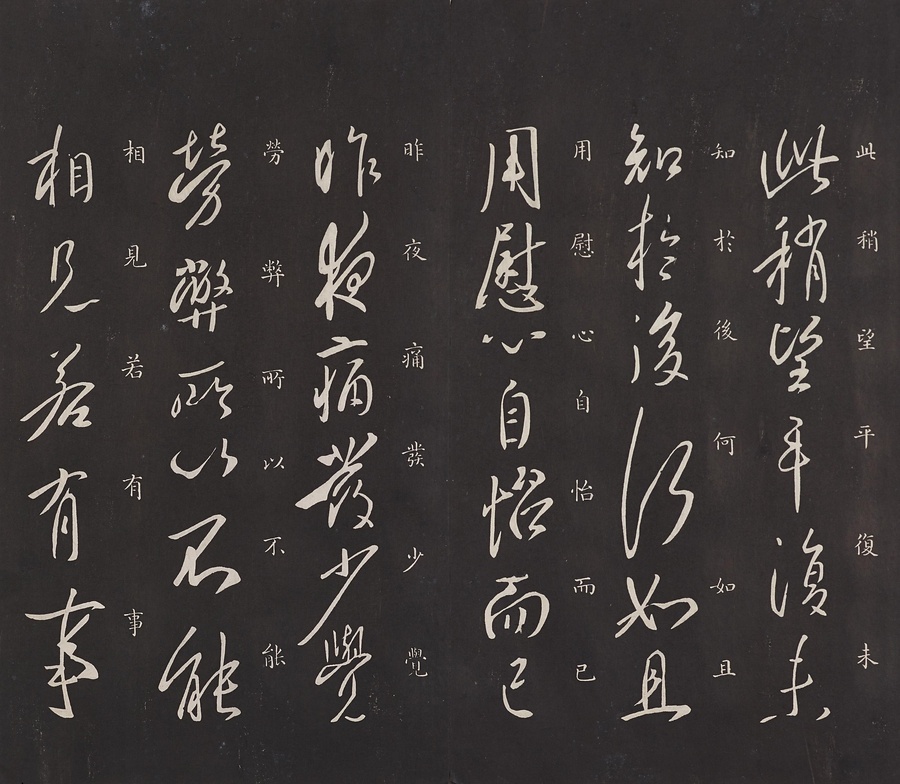 此稍望平復未
此稍望平復未
知於後何如且
知於後何如且
用慰心自怡而已
用慰心自怡而已
昨夜痛發少覺
昨夜痛發少覺
勞弊所以不能
勞弊所以不能
相見若有事
相見若有事